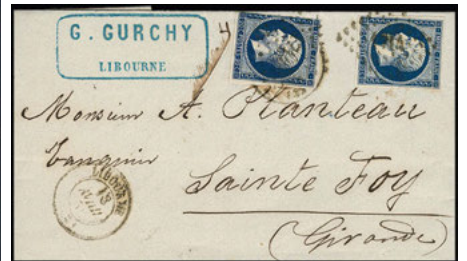 G. GURCHY
LIBOURNE
Monsieur A. Planteau
Banquier
Sainte Foy
(Gironde)
LIBOURNE
18